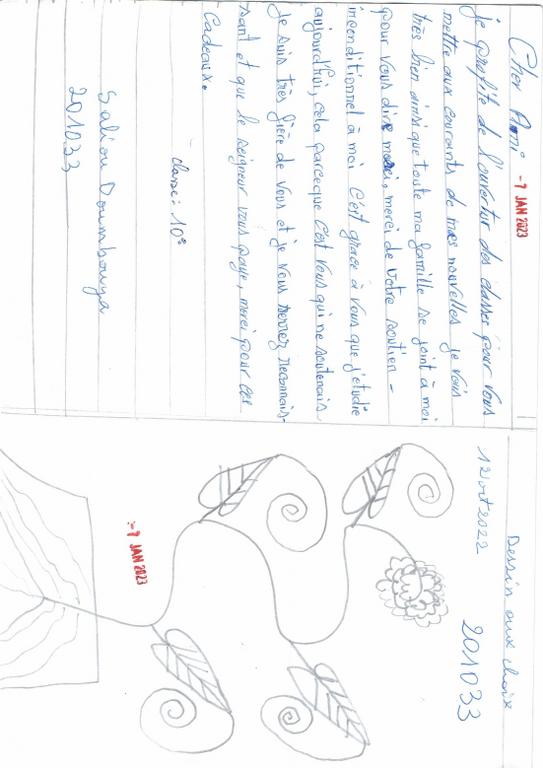 Cher Ami
-7 JAN 2023
je profite de l'ouvertur des classes pour vous
mettre aux courants de mes nouvelles je vais
très bien ainsi que toute ma famille se joint à moi
pour vous dire merci, merci de votre soutien -
inconditionnel à moi C'est grace à vous que j'étudie
aujourd'hui, cela parceque C'est vous qui me soutenais.
Je suis très fière de vous et je vous serrez reconnais-
sant et que le seigneur vous paye, merci pour ces
Cadeaux.
- classe: 10e
Saliou Doumbouya
201033
Dessin aux choix
12 oct 2022
201033
-7 JAN 2023